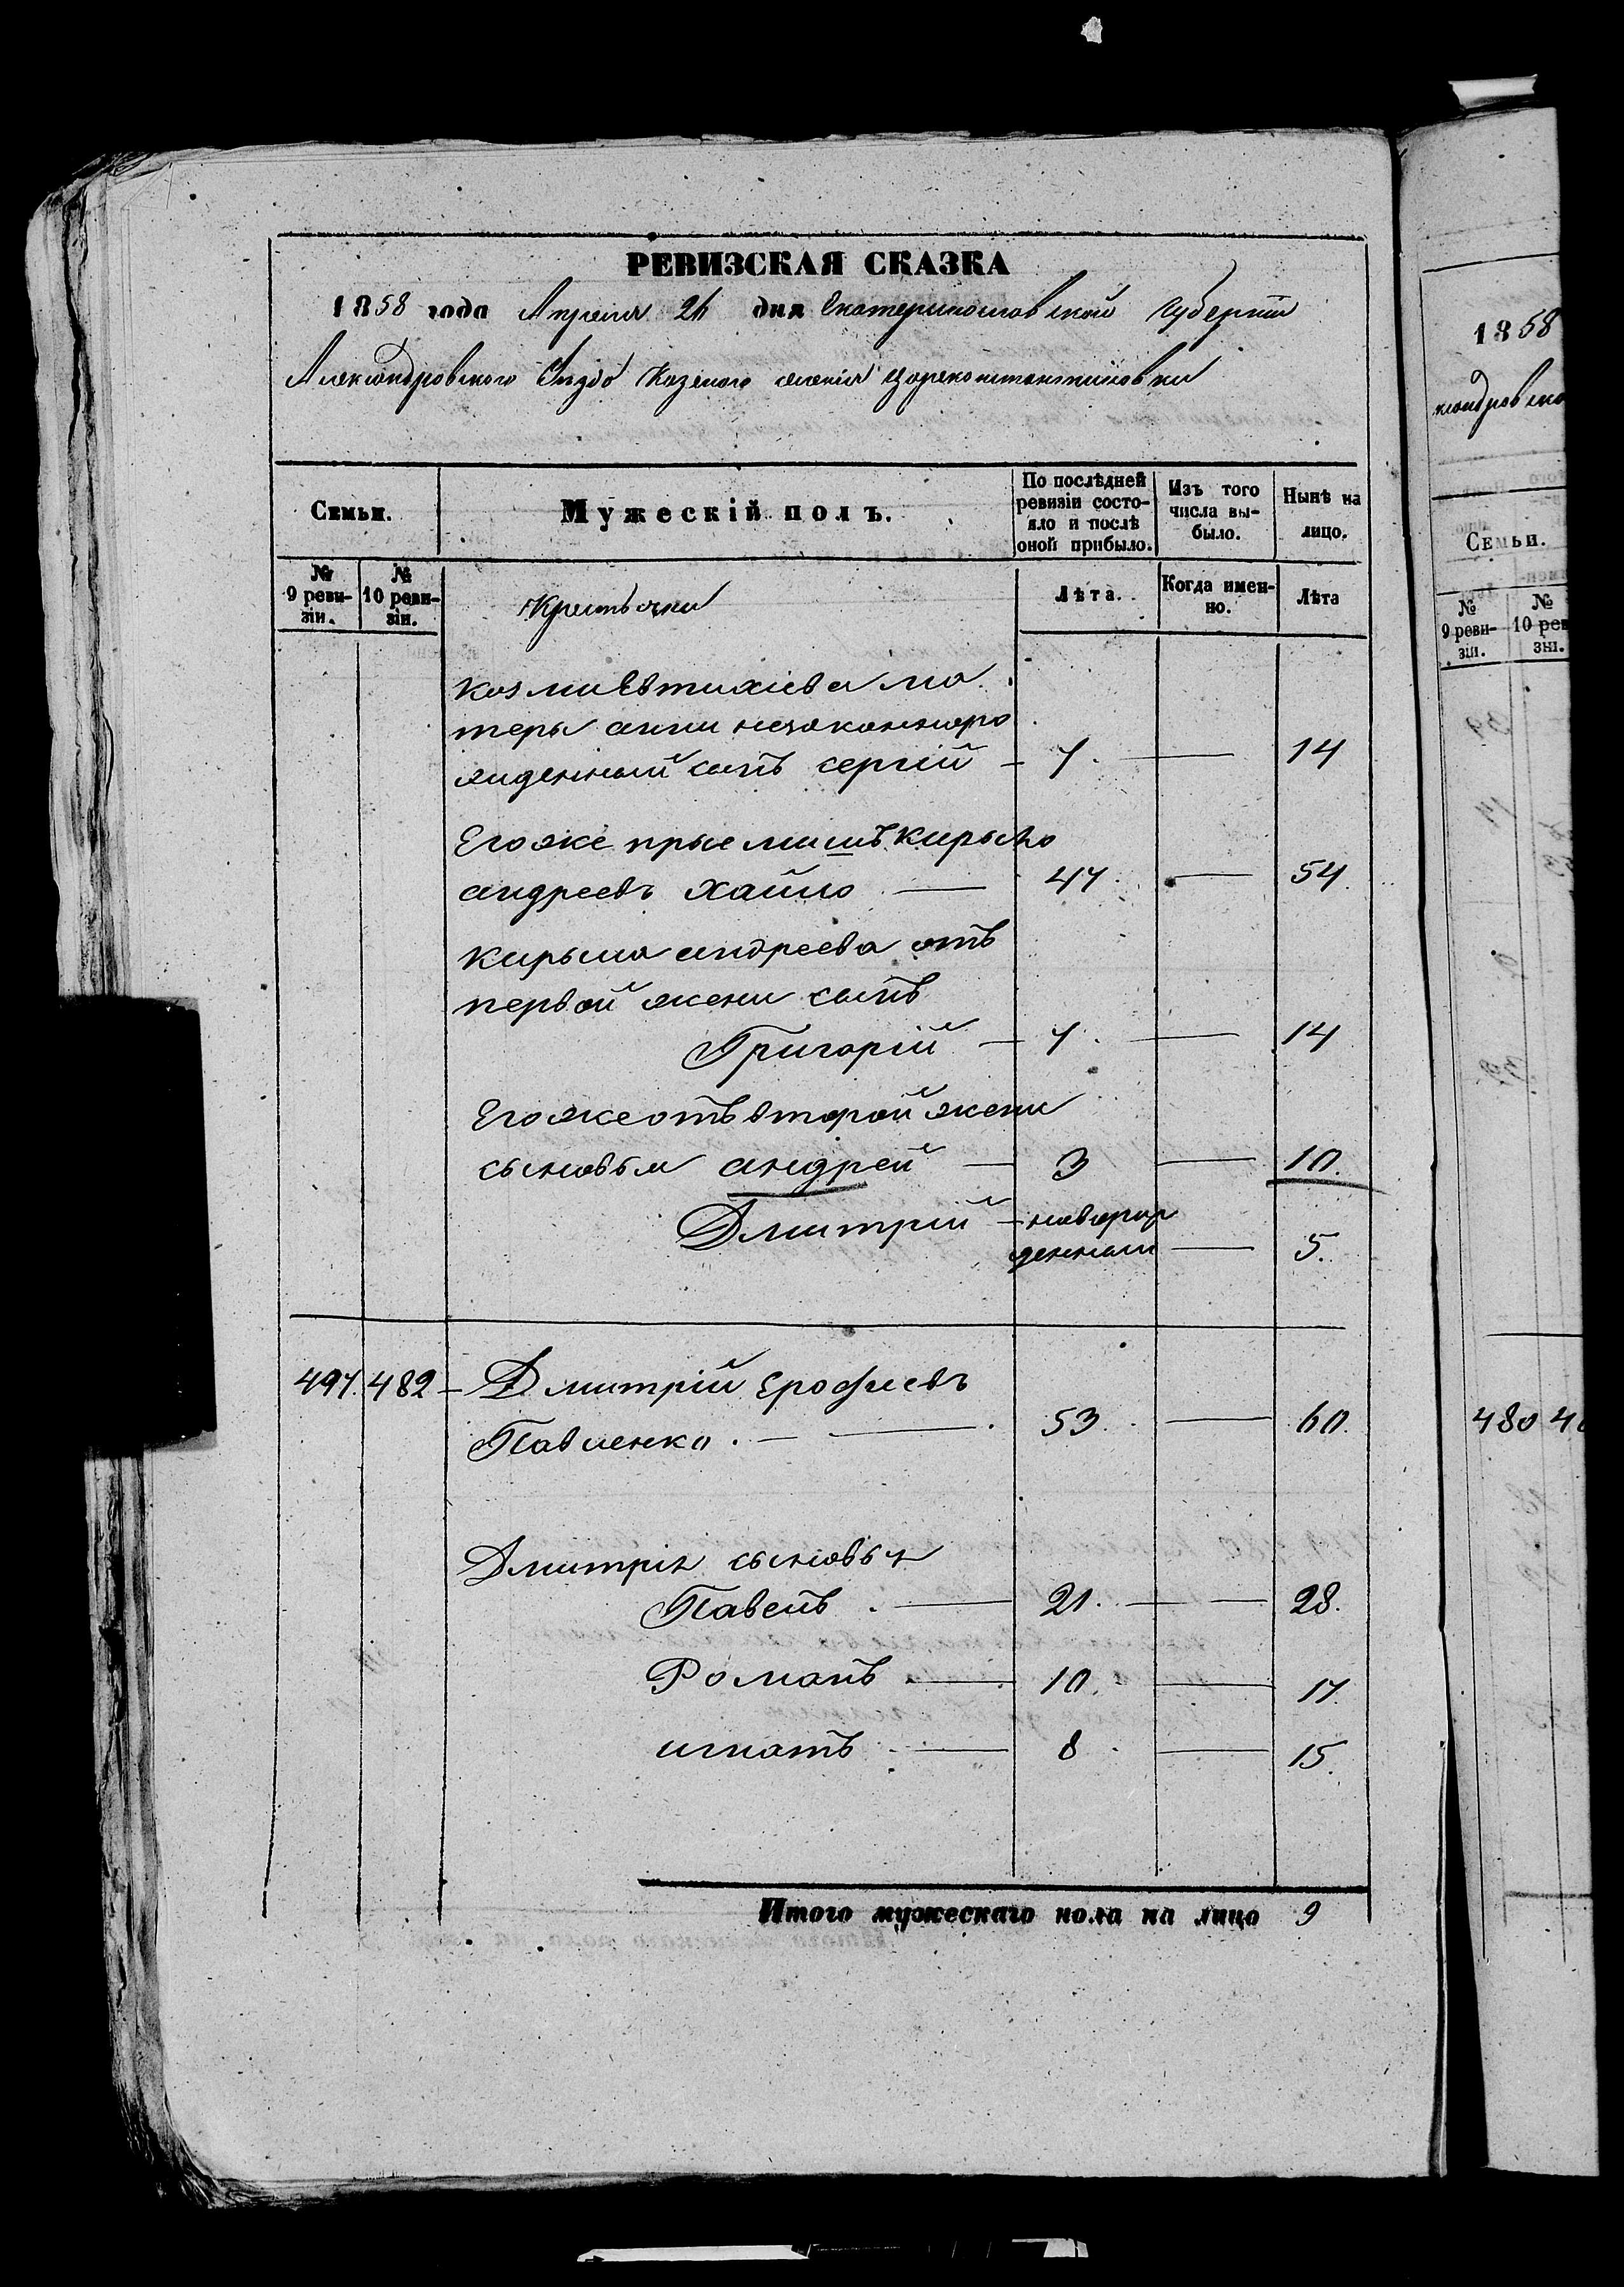 РЕВИЗСКАЯ СКАЗКА
1858 года Апреля 26 дня Екатеринославской Губернии
Александровского Уезда Казеного селения Цареконстантиновки
Семьи.
Мужескій полъ.
По послѣдней ревизіи состояло и послѣ оной прибыло.
Изъ того числа выбыло.
Нынѣ на лицо.
№ 9 ревизіи.
№ 10 ревизіи.
Крестьяни
Лѣта.
Когда именно.
Лѣта
Козми Евтихіева ма
тери анни незаконноро
жденный сынъ сергій — 7. — 14
Егоже прыемишъ Кирыло
андреевъ Хайло — 47. — 54.
Кирыла андреева отъ
первой жени сынъ
Григорій — 7. — 14
Егоже отъ второй жени
сыновья андрей — 3 — 10.
Дмитрій — новорож
денный — 5.
497. 482 — Дмитрій Ерофеевъ
Павленко. — 53. — 60.
Дмитрія сыновья
Павелъ. — 21. — 28.
Романъ — 10. — 17.
игнатъ — 8. — 15.
Итого мужескаго пола на лицо 9
1858
Семьи.
№ 9 ревизіи.
№ 10 рев
зіи.
480